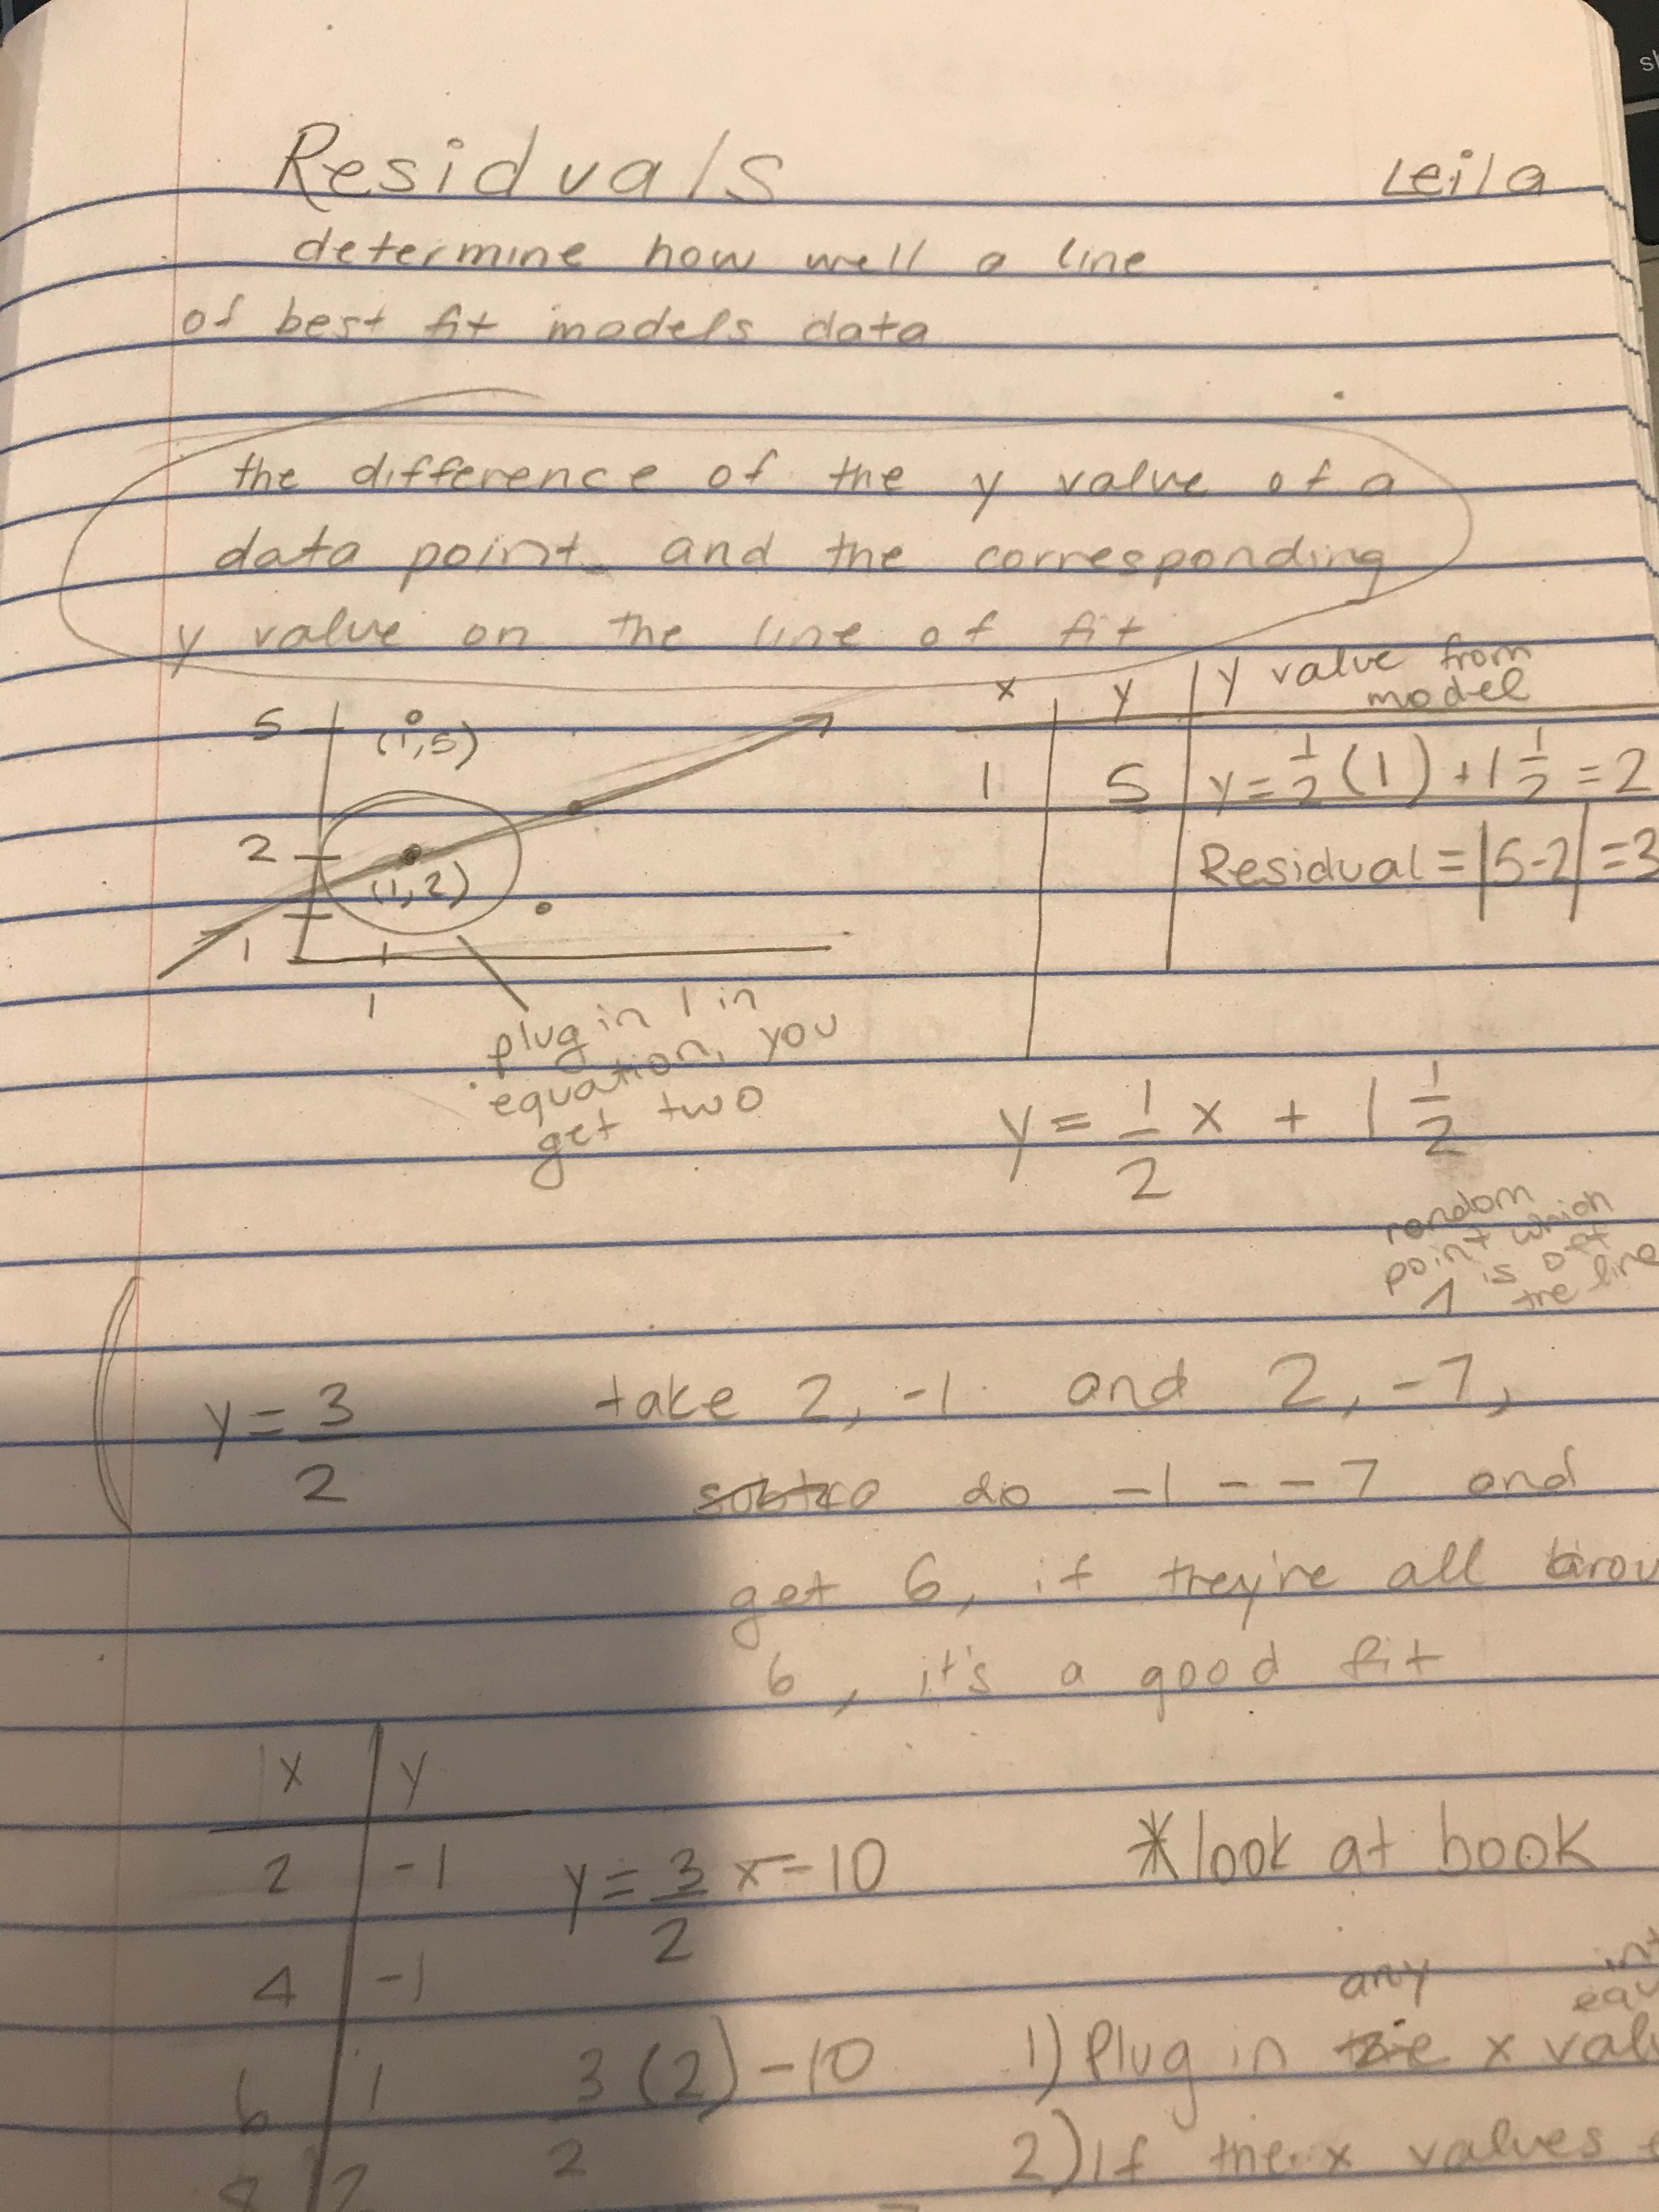 Residuals
Leila
determine how well a line
of best fit models data
the difference of the y value of a
data point and the corresponding
y value on the line of fit
5
(1,5)
2
(1,2)
1
1
plug in 1 in
equation, you
get two
x | y | y value from
model
1 | 5 | y = 1/2 (1) + 1 1/2 = 2
Residual = |5-2| = 3
y = 1/2 x + 1 1/2
random
point which
is off
the line
y = 3/2
take 2, -1 and 2, -7,
do -1 - -7 and
get 6, if they're all
6, it's a good fit
x | y
2 | -1
y = 3/2 x - 10
*look at book
4 | -1
any
6 | 1
3/2 (2) - 10
1) Plug in x
8 | 2
2) If the x values